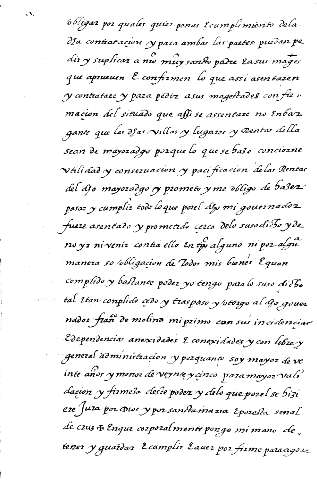 obligar por quales quier penas E cumplimiento dela
dha contratacion y para ambas las partes puedan pe
dir y suplicar a nro muy santo padre E a sus magtes
que aprueuen E confirmen lo que assi asentaren
y contratare y para pedir a sus magestades confir
macion del situado que assi se asentare no Enbar
gante que las dhas villas y lugares y Rentas della
sean de mayoradgo porque lo que se haze concierne
vtilidad y conseruacion y pacificacion delas Rentas
del dho mayoradgo y prometo y me obligo de hazer
pasar y cumplir todo lo que por el dho mi gouernador
fuere asentado y prometido cerca delo susodicho y de
no yr ni venir contra ello En tpo alguno ni por alguna
manera so obligacion de Todos mis bienes E quan
complido y bastante poder yo tengo para lo suso dicho
tal Etan conplido çedo y traspaso y otorgo al dho gouer
nador franco de molina mi primo con sus incidencias
E dependencias anexidades E conexidades y con libre y
general administracion y porquanto soy mayor de ve
inte años y menos de veynte y cinco para mayor vali
dacion y firmeza deste poder y delo que por el se hizi
ere Jura por Dios y por sancta maria E por esta senal
de cruz ✠ Enque corporalmente pongo mi mano de
tener y guardar E cumplir E auer por firme para agora